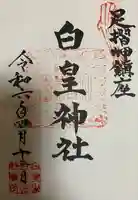 足摺岬鎮座
白皇神社
令和六年四月十三日